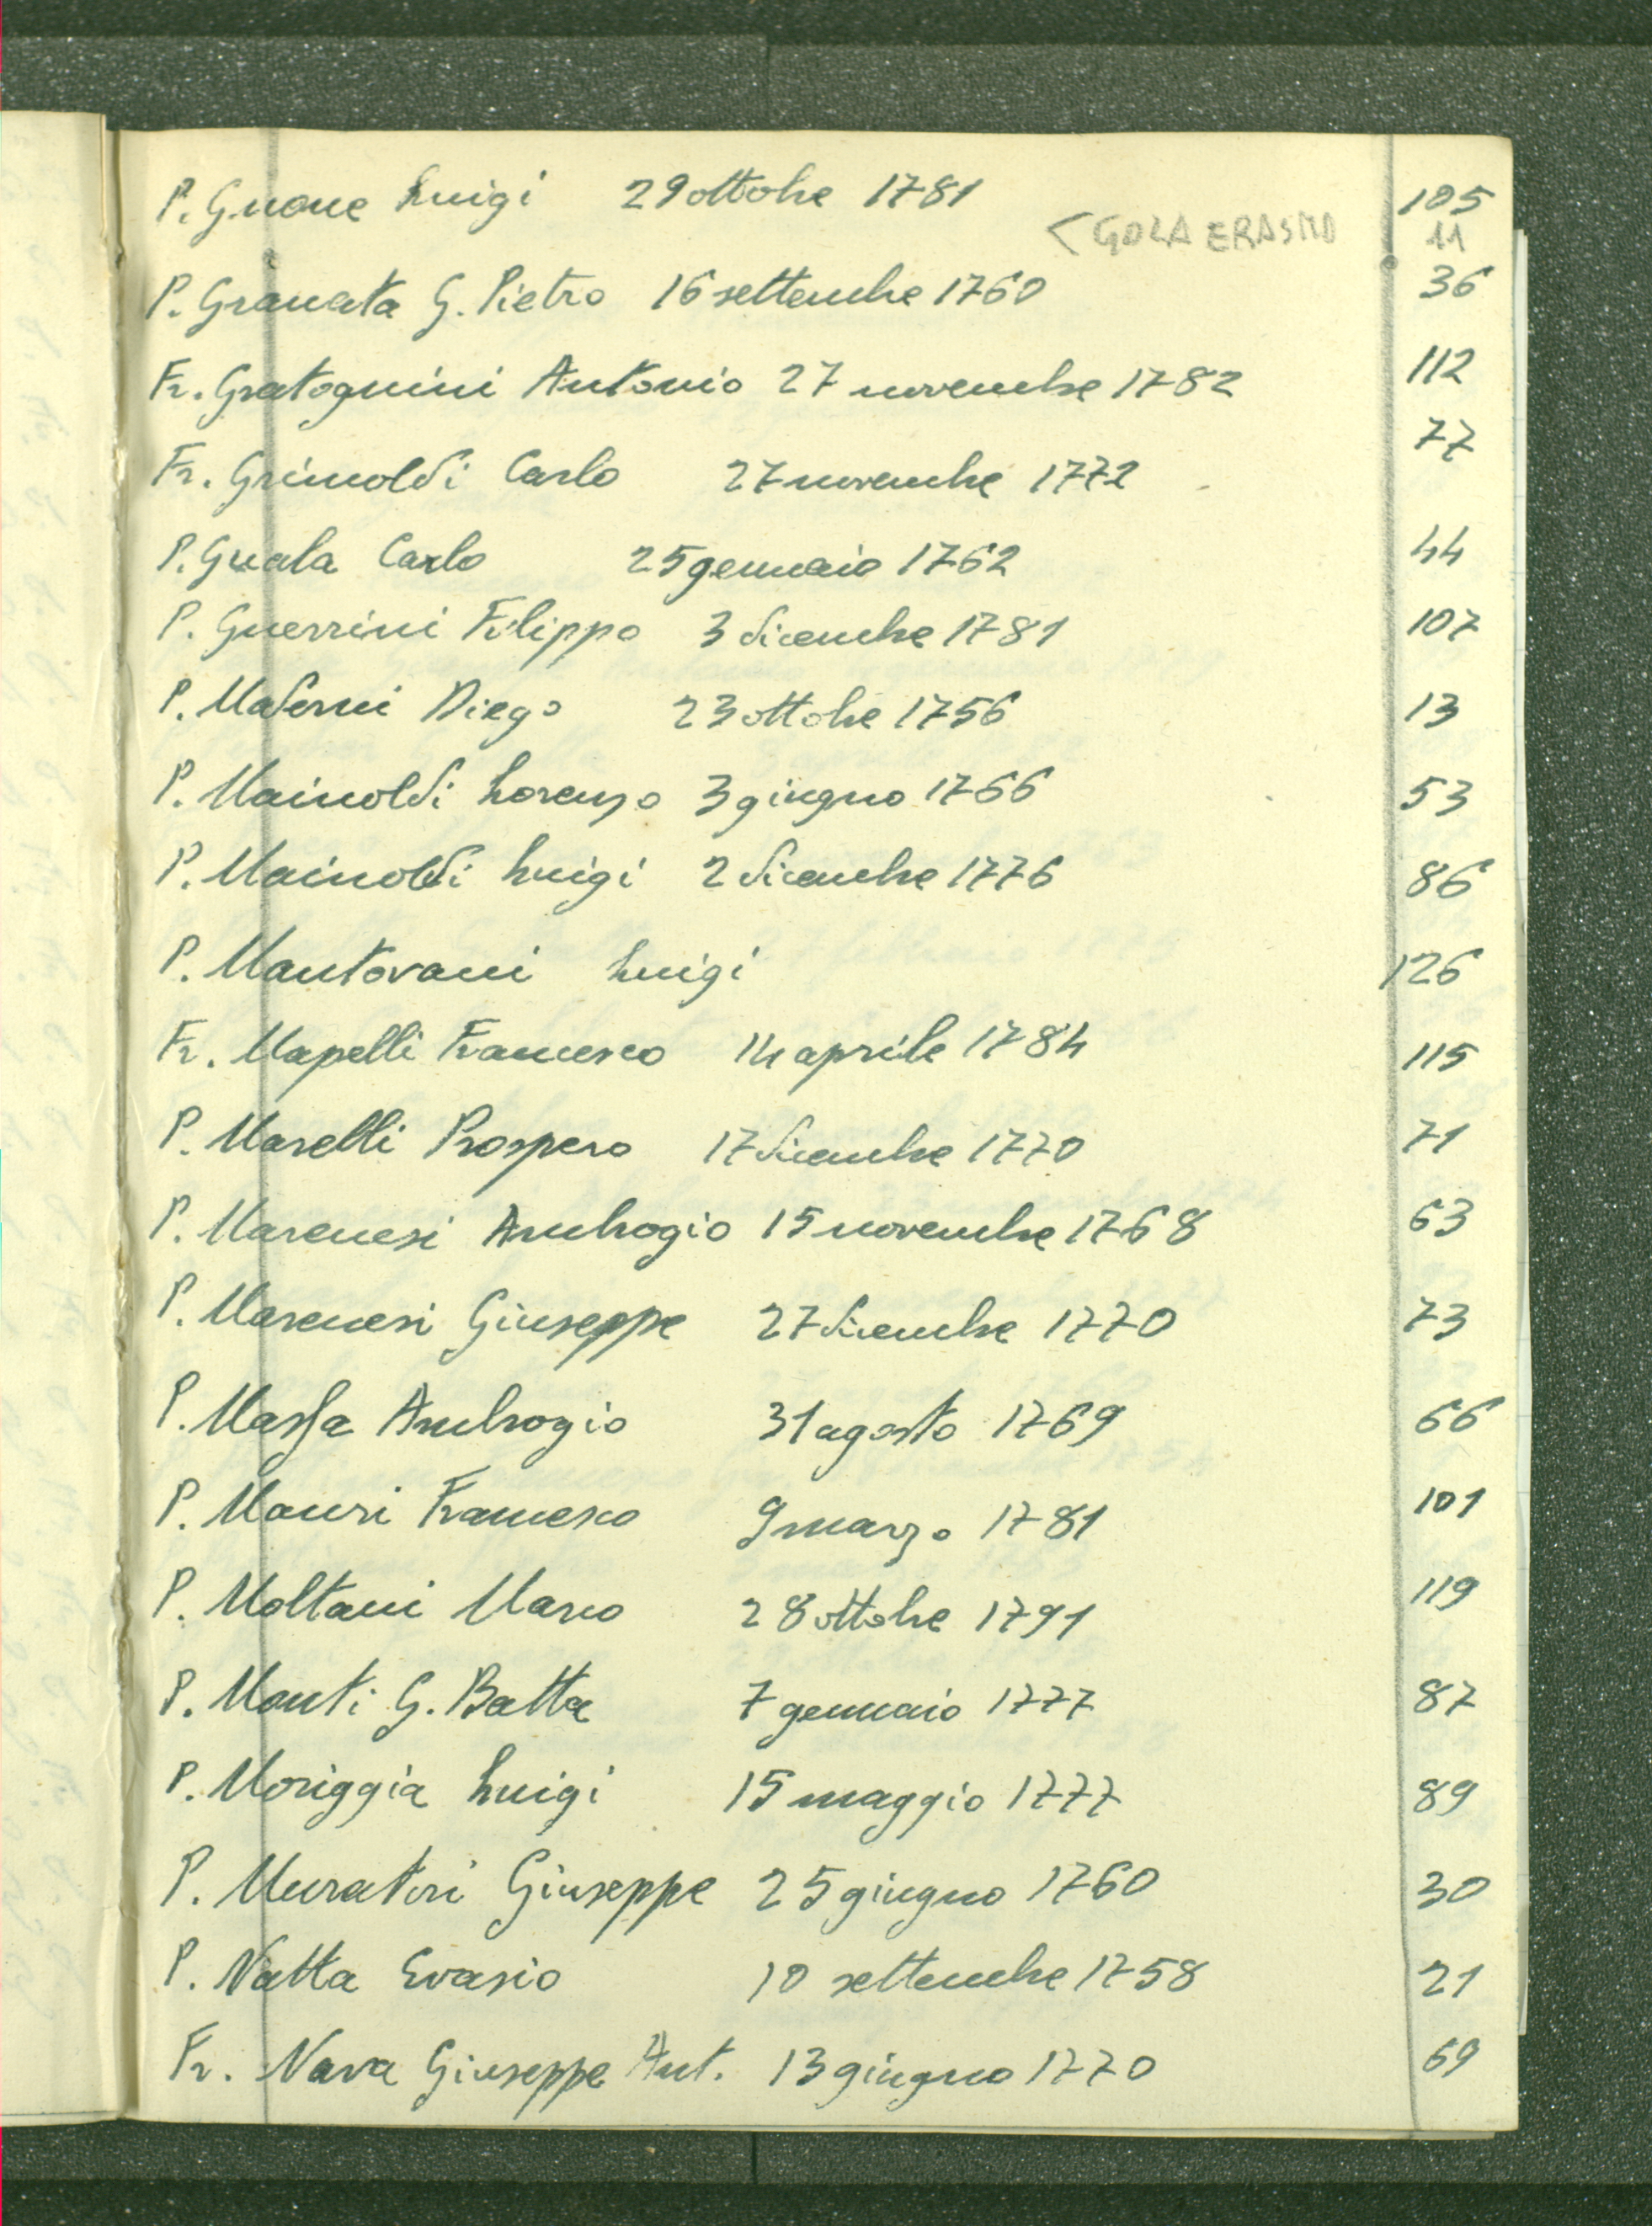 P. Gnone Luigi 29 ottobre 1781 105
< GOLA ERASMO 11
P. Granata G. Pietro 16 settembre 1760 36
Fr. Gratognini Antonio 27 novembre 1782 112
Fr. Grimoldi Carlo 27 novembre 1772 77
P. Guala Carlo 25 gennaio 1762 44
P. Guerrini Filippo 3 dicembre 1781 107
P. Maderni Diego 23 ottobre 1756 13
P. Mainoldi Lorenzo 3 giugno 1766 53
P. Mainoldi Luigi 2 dicembre 1776 86
P. Mantovani Luigi 126
Fr. Mapelli Francesco 14 aprile 1784 115
P. Marelli Prospero 17 dicembre 1770 71
P. Marenesi Ambrogio 15 novembre 1768 63
P. Marenesi Giuseppe 27 dicembre 1770 73
P. Massa Ambrogio 31 agosto 1769 66
P. Mauri Francesco 9 marzo 1781 101
P. Moltani Marco 28 ottobre 1791 119
P. Monti G. Batta 7 gennaio 1777 87
P. Moriggia Luigi 15 maggio 1777 89
P. Muratori Giuseppe 25 giugno 1760 30
P. Natta Evasio 10 settembre 1758 21
Fr. Nava Giuseppe Ant. 13 giugno 1770 69